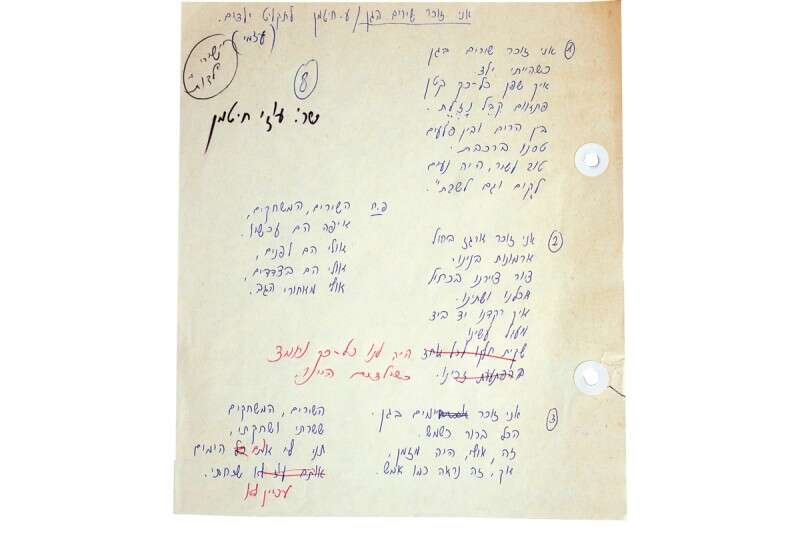 אני זוכר שירים בגן / ע. חיטמן לתקליט ילדים.
(עוזי)
"שירי ילדות"
8
שר: עוזי חיטמן
1 אני זוכר שירים בגן
כשהייתי ילד
איך שפן כל-כך קטן
פתאום קבל נזלת.
בין הרים ובין סלעים
טסנו ברכבת.
טוב לשיר, היה נעים
לקום וגם לשבת".
פ.ח השירים, המשחקים,
איפה הם עכשיו.
אולי הם לפנים,
אולי הם בצדדים,
אולי מאחורי הגב.
2 אני זוכר ארגז בחול
ארמונות בנינו.
ציור ציירנו בכחול
אכלנו ושתינו.
איך רקדנו יד ביד
מעגל עשינו
שקית חלקו לכל אחד היה לנו כל-כך נחמד
כשילדים היינו.
3 אני זוכר ימים בגן.
הכל ברור כשמש.
זה, אולי, היה מזמן,
אך, זה נראה כמו אמש.
השירים, המשחקים
ששרתי ושחקתי,
הימים
שכחתי.
עדיין לא